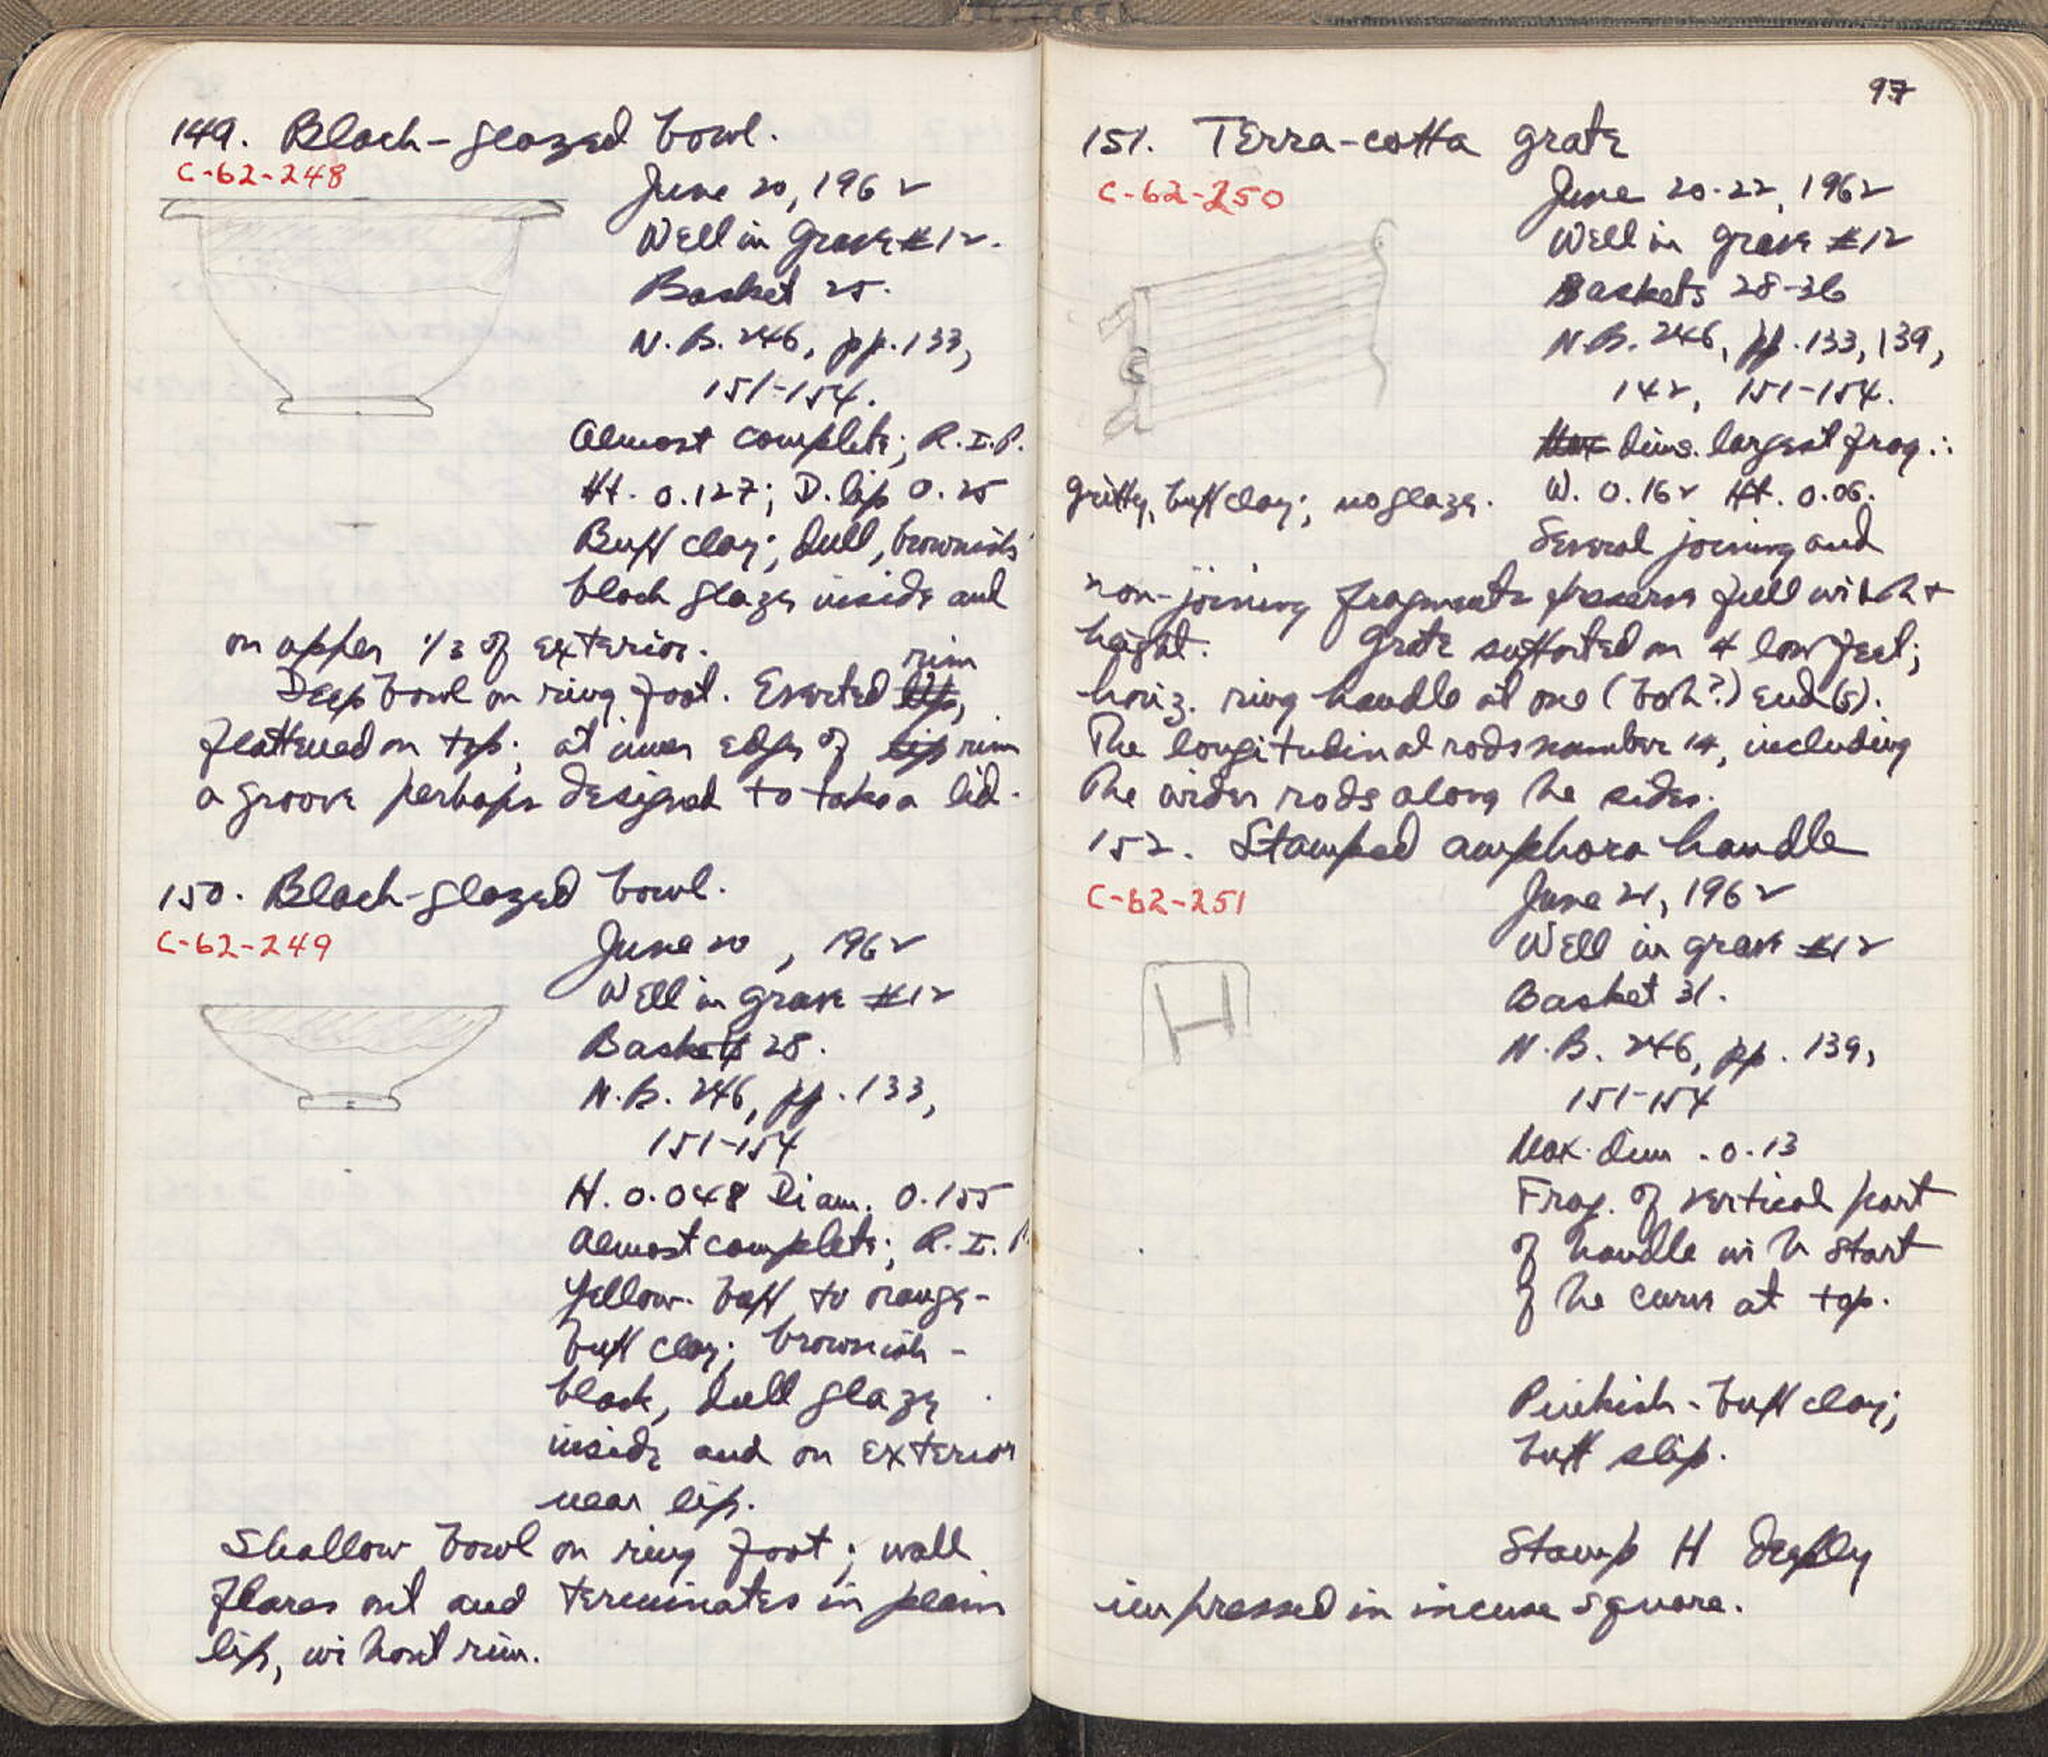 149. Black-glazed bowl.
C-62-248
June 20, 1962
Well in Grave #12.
Basket 25.
N.B. 246, pp. 133,
151-154.
Almost complete; R.I.P.
Ht. 0.127; D. lip 0.25
Buff clay; dull, brownish
black glaze inside and
on upper 1/3 of exterior.
Deep bowl on ring foot. Everted lip, rim
flattened on top; at inner edge of lip rim
a groove perhaps designed to take a lid.
150. Black-glazed bowl.
C-62-249
June 20, 1962
Well in grave #12
Basket 28.
N.B. 246, pp. 133,
151-154
H. 0.048 Diam. 0.155
Almost complete; R.I.P
Yellow-buff to orange-
buff clay; brownish-
black, dull glaze
inside and on exterior
near lip.
Shallow bowl on ring foot; wall
flares out and terminates in plain
lip, without rim.
97
151. Terra-cotta grate
C-62-250
June 20-22, 1962
Well in grave #12
Baskets 28-36
N.B. 246, pp. 133, 139,
142, 151-154.
Max dims. largest frag.:
W. 0.162 Ht. 0.06.
Gritty, buff clay; no glaze.
Several joining and
non-joining fragments preserve full width +
height. Grate supported on 4 low feet;
horiz. ring handle at one (both?) end(s).
The longitudinal rods number 14, including
the wider rods along the sides.
152. Stamped amphora handle
C-62-251
June 21, 1962
Well in grave #12
Basket 31.
N.B. 246, pp. 139,
151-154
H
Max. dim. 0.13
Frag. of vertical part
of handle with start
of the curve at top.
Pinkish-buff clay;
buff slip.
Stamp H deeply
impressed in incuse square.